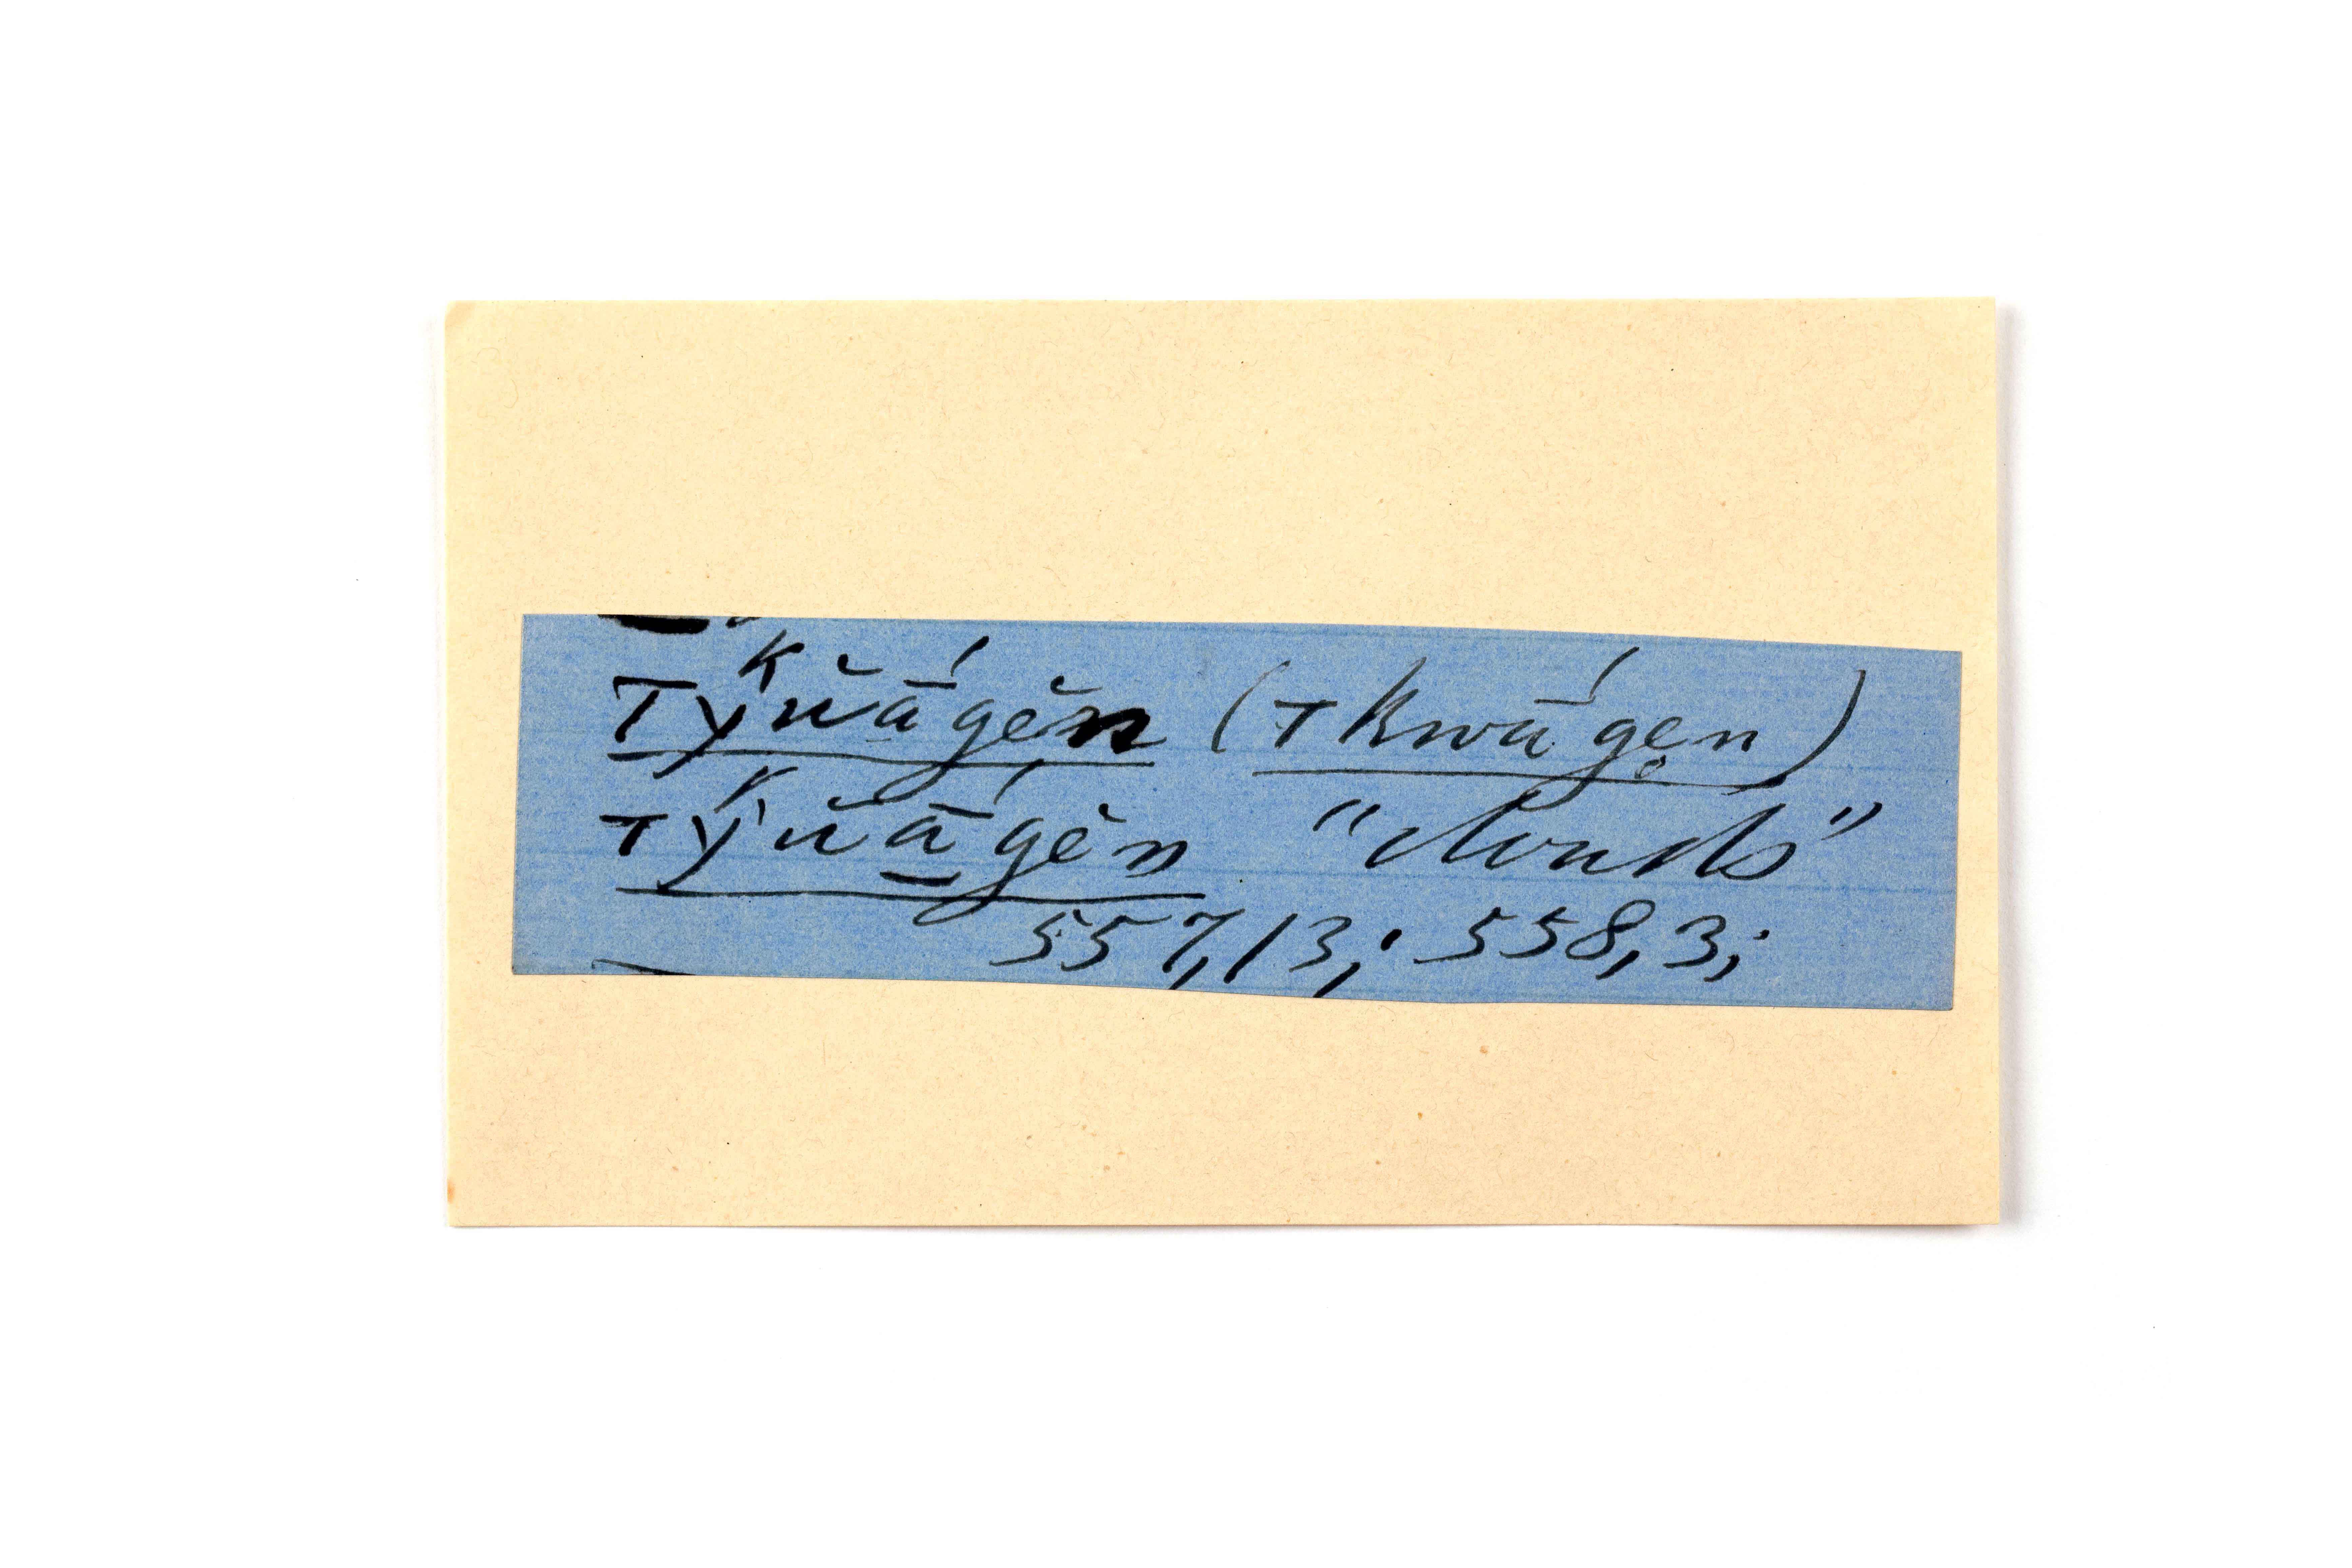 Tyᴷŭā́gĕn (Tkwā́gen)
Tyᴷ'ŭā́gĕn "clouds"
557,13; 558,3;